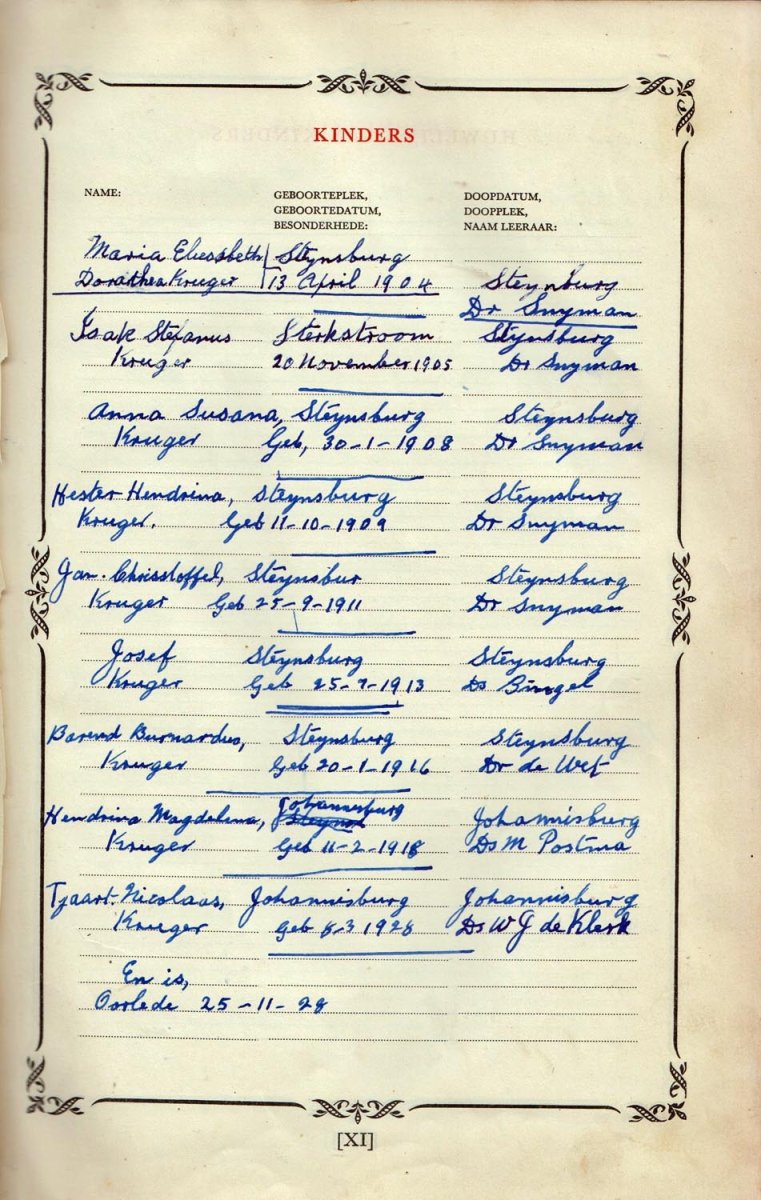 KINDERS
NAME: GEBOORTEPLEK, DOOPDATUM,
GEBOORTEDATUM, DOOPPLEK,
BESONDERHEDE: NAAM LEERAAR:
Maria Eliesabeth Steynsburg
Dorathea Kruger 13 April 1904 Steynburg
Dr Snyman
Isak Stefanus Sterkstroom Stynsburg
Kruger 20 November 1905 Dr Snyman
Anna Susana, Steynsburg Steynsburg
Kruger Geb, 30-1-1908 Dr Snyman
Hester Hendrina, Steynsburg Steynsburg
Kruger. Geb 11-10-1909 Dr Snyman
Jan. Chrisstoffel, Steynsbur Steynsburg
Kruger Geb 25-9-1911 Dr Snyman
Josef Steynsburg Steynsburg
Kruger Geb 25-7-1913 Ds
Barend Burnardus, Steynsburg Steynsburg
Kruger Geb 20-1-1916 Dr de Wet
Hendrina Magdelena, Johannisburg Johannisburg
Kruger Geb 11-2-1918 Ds M Postma
Tjaart. Nicolaas, Johannisburg Johannisburg
Kruger Geb 8-3 1928 Ds W J de Klerk
En is,
Oorlede 25-11-28
[XI]